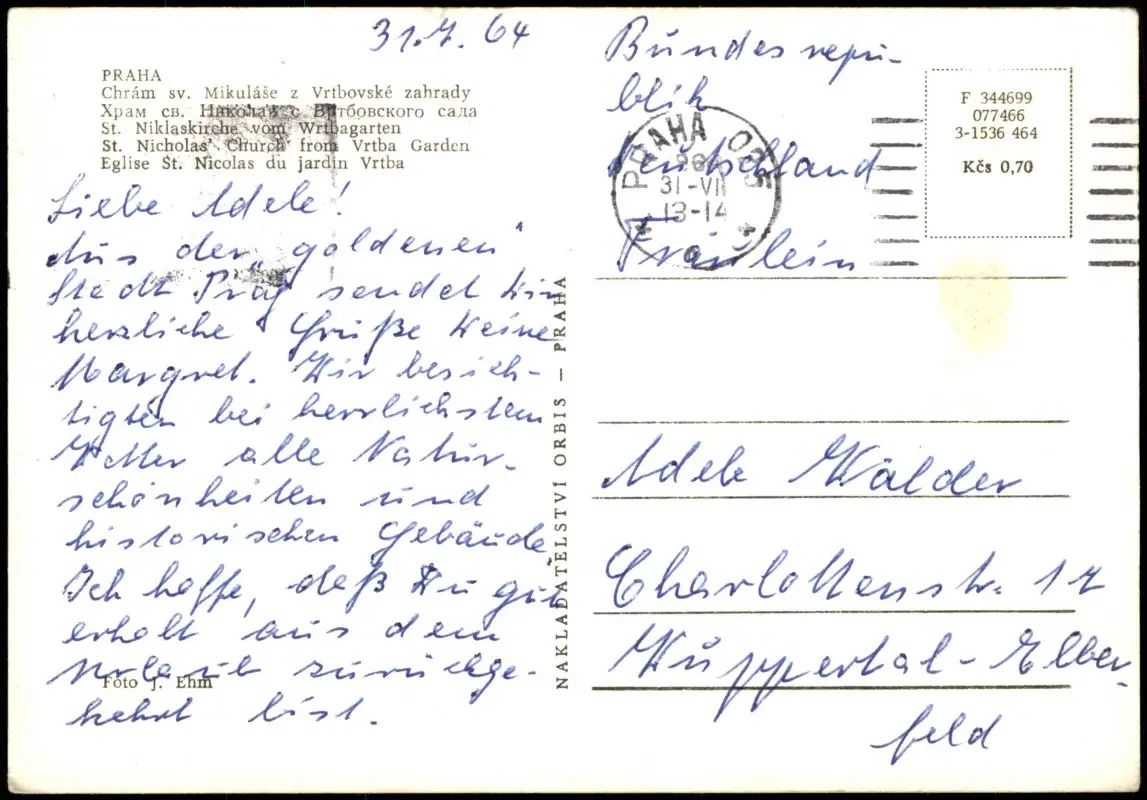 31.7.64
PRAHA
Chrám sv. Mikuláše z Vrtbovské zahrady
Храм св. Николая с Вртбовского сада
St. Niklaskirche vom Wrtbagarten
St. Nicholas' Church from Vrtba Garden
Eglise St. Nicolas du jardin Vrtba
Liebe Adele!
Aus der „goldenen"
Stadt Prag sendet Dir
herzliche Grüße Deine
Margret. Wir besich-
tigten bei herrlichstem
Wetter alle Natur-
schönheiten und
historischen Gebäude.
Ich hoffe, daß Du gut
erholt aus dem
Urlaub zurückge-
kehrt bist.
Foto J. Ehm
NAKLADATELSTVÍ ORBIS — PRAHA
Bundesrepu-
blik
Deutschland
Fräulein
PRAHA
31-VII
13-14
F 344699
077466
3-1536 464
Kčs 0,70
Adele Wälder
Charlottenstr. 17
Wuppertal-Elber-
feld